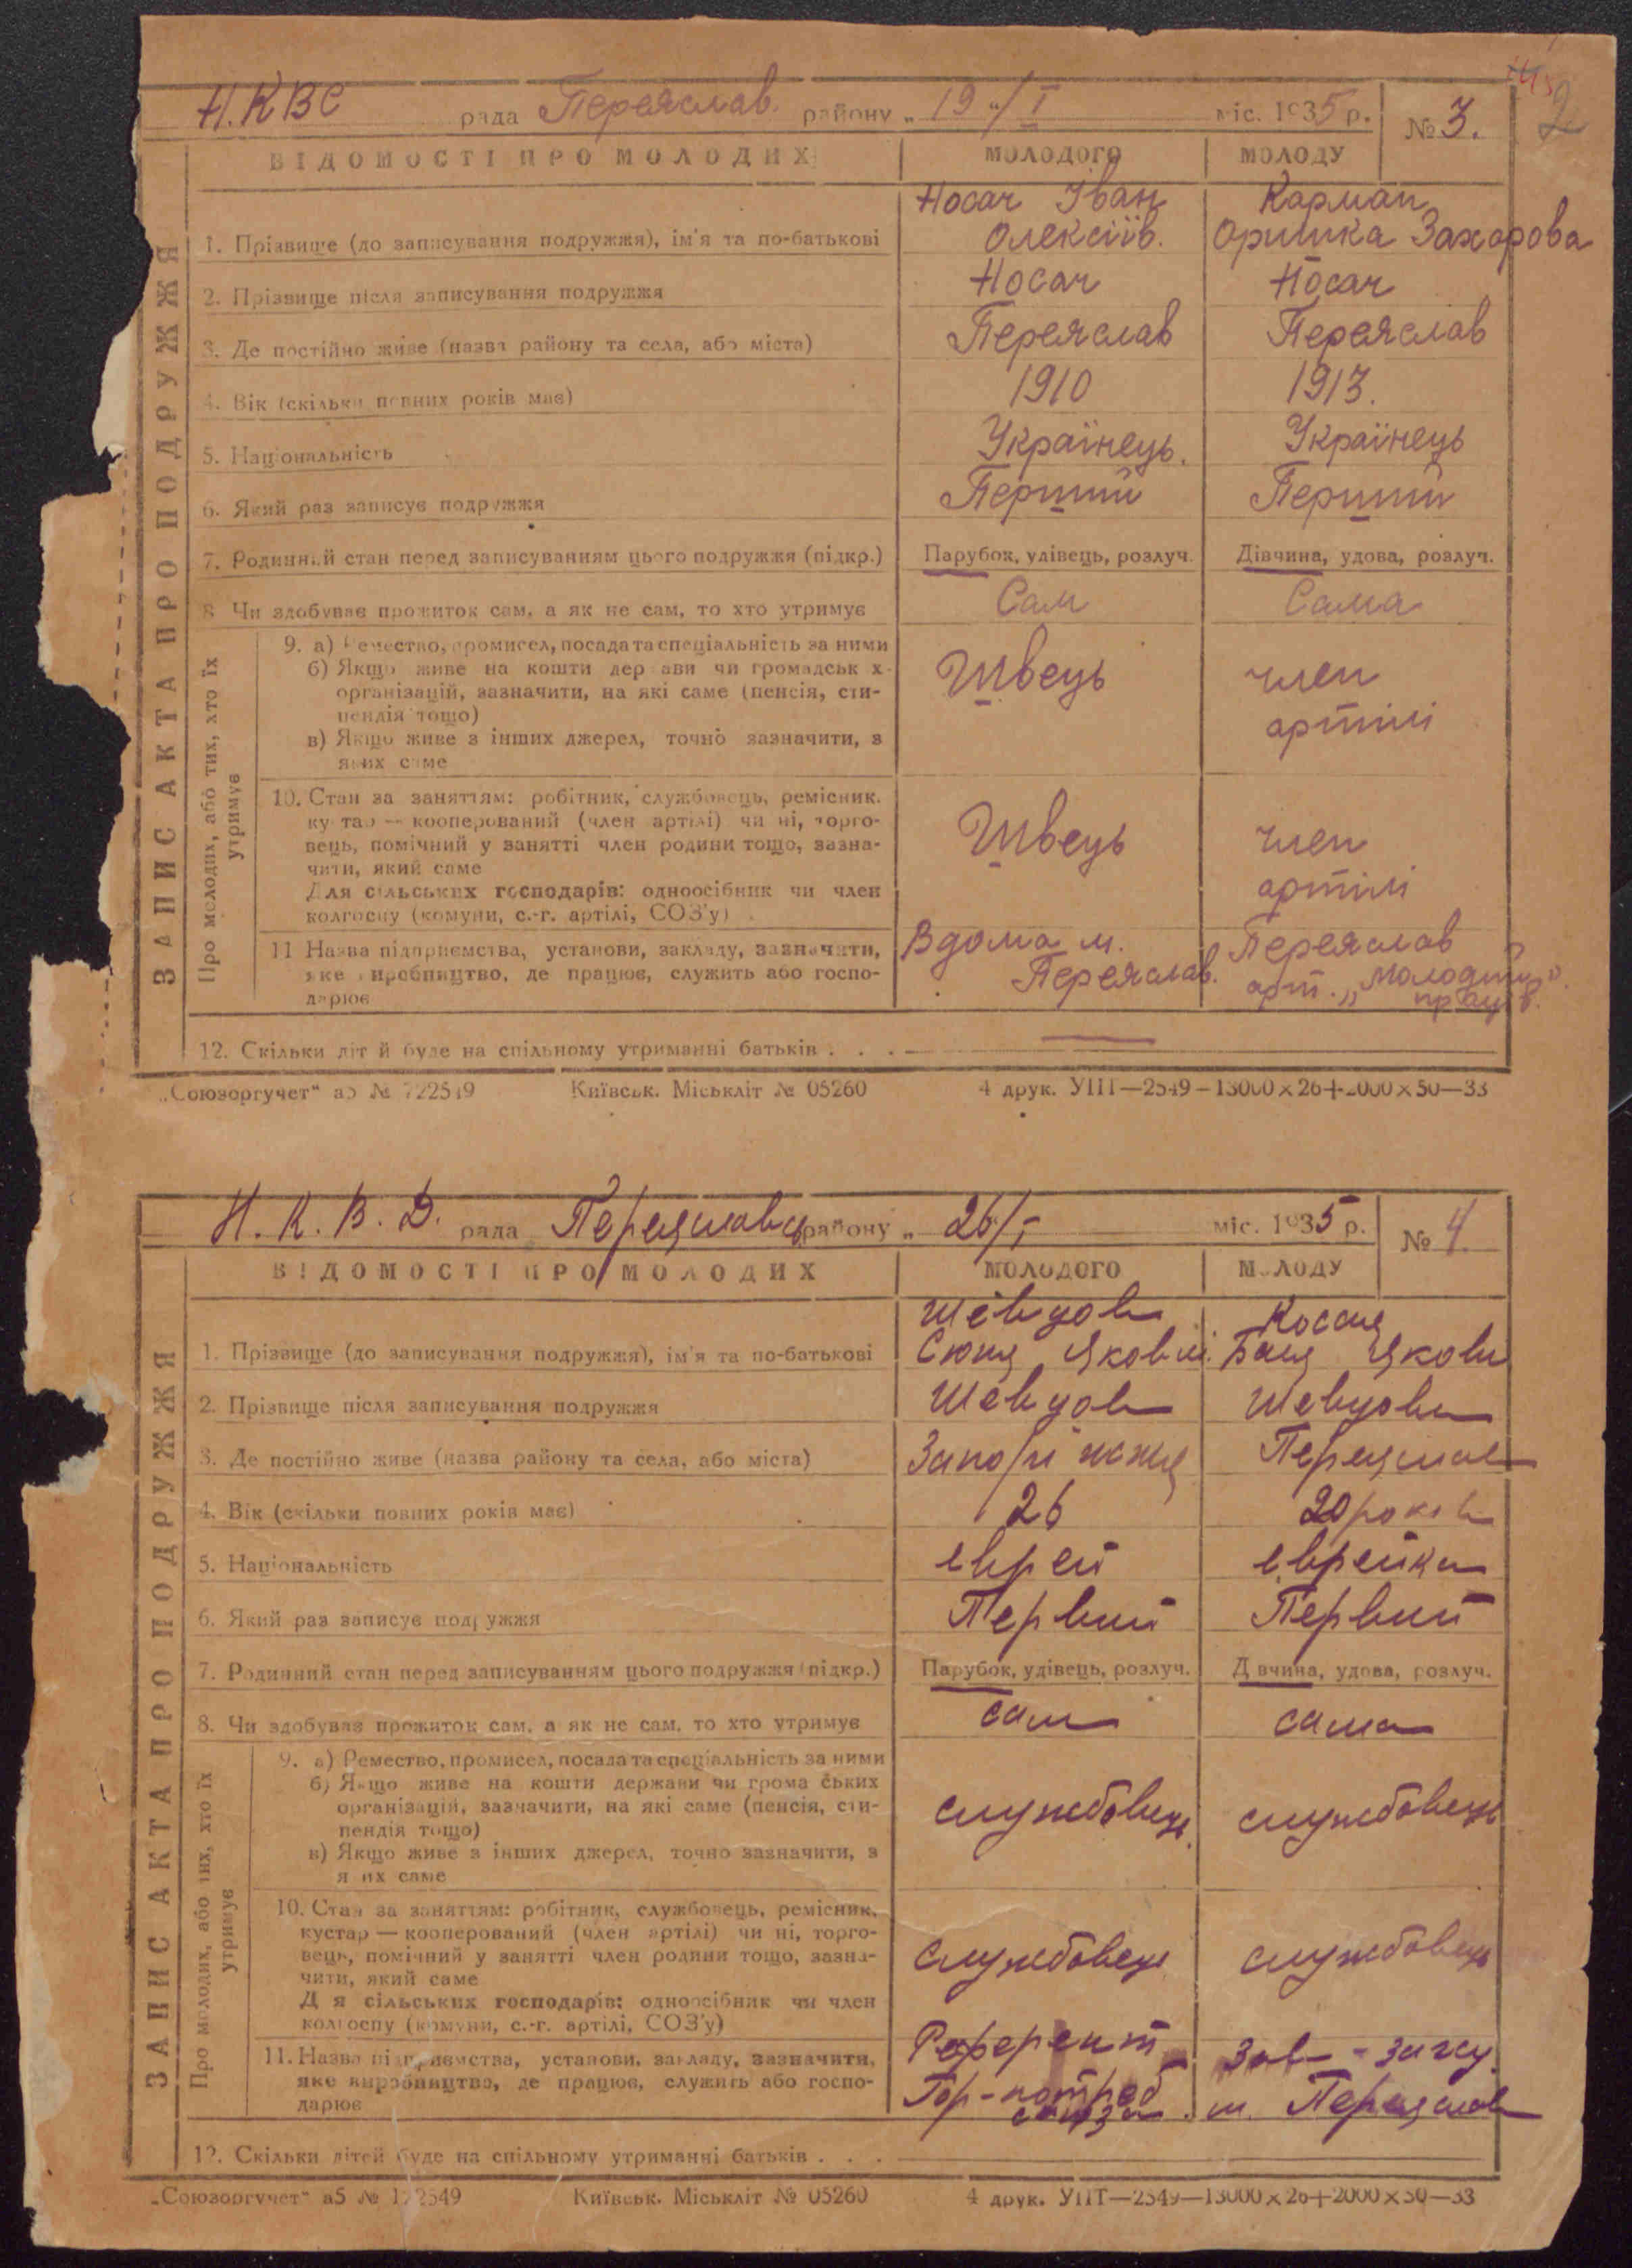 Н.КВС рада Переяслав. району „ 19 "/I міс. 1935 р. № 3.
2
ВІДОМОСТІ ПРО МОЛОДИХ МОЛОДОГО МОЛОДУ
ЗАПИС АКТА ПРО ПОДРУЖЖЯ
Носач Іван Карман
1. Прізвище (до записування подружжя), ім'я та по-батькові Олексіїв. Оришка Захарова
2. Прізвище після записування подружжя Носач Носач
3. Де постійно живе (назва району та села, або міста) Переяслав Переяслав
4. Вік (скільки повних років має) 1910 1913.
5. Національність Українець. Українець
6. Який раз записує подружжя Перший Перший
7. Родинний стан перед записуванням цього подружжя (підкр.) Парубок, удівець, розлуч. Дівчина, удова, розлуч.
8 Чи здобуває прожиток сам, а як не сам, то хто утримує Сам Сама
Про молодих, або тих, хто їх утримує
9. а) Ремество, промисел, посада та спеціальність за ними
б) Якщо живе на кошти держави чи громадських
організацій, зазначити, на які саме (пенсія, сти-
пендія тощо)
в) Якщо живе з інших джерел, точно зазначити, з
яких саме
Швець член
артілі
10. Стан за заняттям: робітник, службовець, ремісник.
кустар — кооперований (член артілі) чи ні, торго-
вець, помічний у занятті член родини тощо, зазна-
чити, який саме
Для сільських господарів: одноосібник чи член
колгоспу (комуни, с.-г. артілі, СОЗ'у)
Швець член
артілі
11 Назва підприємства, установи, закладу, зазначити,
яке виробництво, де працює, служить або госпо-
дарює
Вдома м. Переяслав
Переяслав. арт. „Молодий
12. Скільки дітей буде на спільному утриманні батьків . . . —
„Союзоргучет" а5 № 122549 Київськ. Міськліт № 05260 4 друк. УПТ—2549—13000×26+2000×50—33
Н. К. В. Д. рада Переяславсь району „ 26/I міс. 1935 р. № 4.
ВІДОМОСТІ ПРО МОЛОДИХ МОЛОДОГО МОЛОДУ
ЗАПИС АКТА ПРО ПОДРУЖЖЯ
Шевцов
1. Прізвище (до записування подружжя), ім'я та по-батькові Сюня Яковл. Бася Якови
2. Прізвище після записування подружжя Шевцов Шевцова
3. Де постійно живе (назва району та села, або міста) Запоріжжя Переяслав
4. Вік (скільки повних років має) 26 20 років
5. Національність еврей еврейка
6. Який раз записує подружжя Первий Первий
7. Родинний стан перед записуванням цього подружжя (підкр.) Парубок, удівець, розлуч. Дівчина, удова, розлуч.
8. Чи здобуває прожиток сам, а як не сам, то хто утримує сам сама
Про молодих, або тих, хто їх утримує
9. а) Ремество, промисел, посада та спеціальність за ними
б) Якщо живе на кошти держави чи громадських
організацій, зазначити, на які саме (пенсія, сти-
пендія тощо)
в) Якщо живе з інших джерел, точно зазначити, з
яких саме
службовець службовець
10. Стан за заняттям: робітник, службовець, ремісник,
кустар — кооперований (член артілі) чи ні, торго-
вець, помічний у занятті член родини тощо, зазна-
чити, який саме
Для сільських господарів: одноосібник чи член
колгоспу (комуни, с.-г. артілі, СОЗ'у)
службовець службовець
11. Назва підприємства, установи, закладу, зазначити,
яке виробництво, де працює, служить або госпо-
дарює
Референт Зав - загсу
Гор-потреб союза. м. Переяслав
12. Скільки дітей буде на спільному утриманні батьків . . .
„Союзоргучет" а5 № 122549 Київськ. Міськліт № 05260 4 друк. УПТ—2549—13000×26+2000×50—33